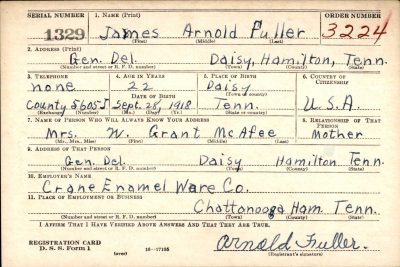 SERIAL NUMBER 1. NAME (Print) ORDER NUMBER
1329 James Arnold Fuller 3224
(First) (Middle) (Last)
2. ADDRESS (Print)
Gen. Del. Daisy, Hamilton, Tenn.
(Number and street or R. F. D. number) (Town) (County) (State)
3. TELEPHONE 4. AGE IN YEARS 5. PLACE OF BIRTH 6. COUNTRY OF CITIZENSHIP
none 22 Daisy
DATE OF BIRTH (Town or county)
County 5605J Sept. 28, 1918 Tenn. U.S.A.
(Exchange) (Number) (Mo.) (Day) (Yr.) (State or country)
7. NAME OF PERSON WHO WILL ALWAYS KNOW YOUR ADDRESS 8. RELATIONSHIP OF THAT PERSON
Mrs. W. Grant McAfee Mother
(Mr., Mrs., Miss) (First) (Middle) (Last)
9. ADDRESS OF THAT PERSON
Gen. Del. Daisy Hamilton Tenn.
(Number and street or R. F. D. number) (Town) (County) (State)
10. EMPLOYER'S NAME
Crane Enamel Ware Co.
11. PLACE OF EMPLOYMENT OR BUSINESS
Chattanooga Ham. Tenn.
(Number and street or R. F. D. number) (Town) (County) (State)
I AFFIRM THAT I HAVE VERIFIED ABOVE ANSWERS AND THAT THEY ARE TRUE.
Arnold Fuller.
REGISTRATION CARD
D. S. S. Form 1 (over) 16—17105 (Registrant's signature)